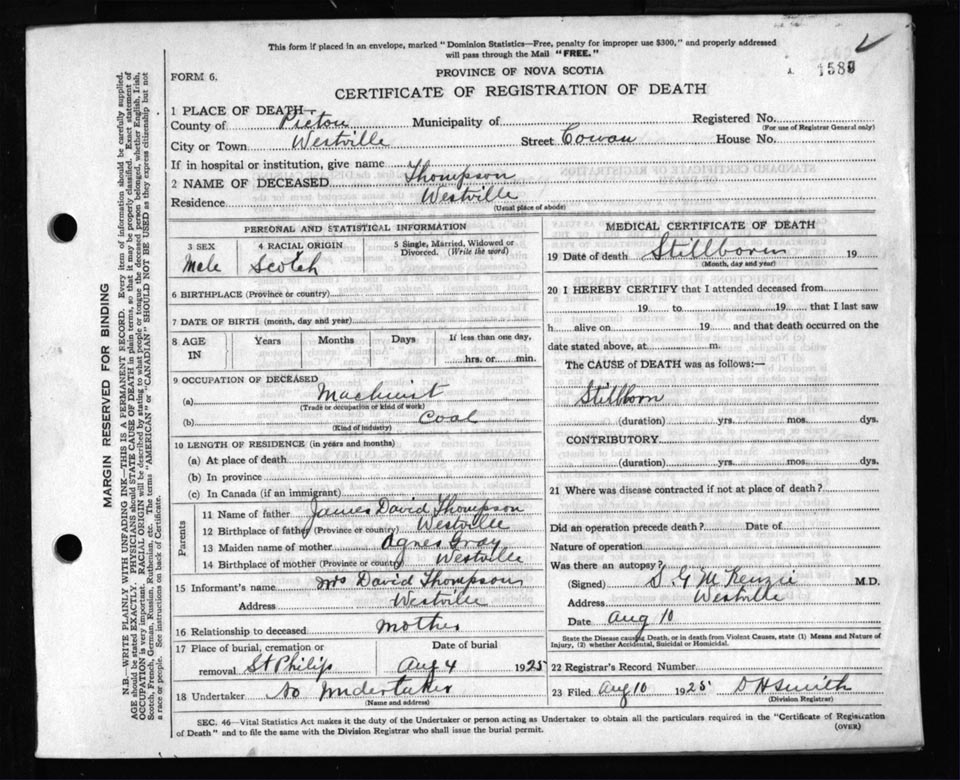 This form if placed in an envelope, marked "Dominion Statistics—Free, penalty for improper use $300," and properly addressed
will pass through the Mail "FREE."
A. 1589
FORM 6.
PROVINCE OF NOVA SCOTIA
CERTIFICATE OF REGISTRATION OF DEATH
1 PLACE OF DEATH—
County of Pictou Municipality of Registered No.
(For use of Registrar General only)
City or Town Westville Street Cowan House No.
If in hospital or institution, give name
2 NAME OF DECEASED Thompson
Residence Westville
(Usual place of abode)
PERSONAL AND STATISTICAL INFORMATION
3 SEX 4 RACIAL ORIGIN 5 Single, Married, Widowed or Divorced. (Write the word)
Male Scotch
6 BIRTHPLACE (Province or country)
7 DATE OF BIRTH (month, day and year)
8 AGE IN Years Months Days If less than one day,
hrs. or min.
9 OCCUPATION OF DECEASED
(a) Machinist
(Trade or occupation or kind of work)
(b) Coal
(Kind of industry)
10 LENGTH OF RESIDENCE (in years and months)
(a) At place of death
(b) In province
(c) In Canada (if an immigrant)
Parents
11 Name of father James David Thompson
12 Birthplace of father (Province or country) Westville
13 Maiden name of mother Agnes Gray
14 Birthplace of mother (Province or country) Westville
15 Informant's name Mrs David Thompson
Address Westville
16 Relationship to deceased mother
17 Place of burial, cremation or removal St Philips
Date of burial Aug 4 1925
18 Undertaker No Undertaker
(Name and address)
MEDICAL CERTIFICATE OF DEATH
19 Date of death Stillborn 19
(Month, day and year)
20 I HEREBY CERTIFY that I attended deceased from
19 to 19 that I last saw
h alive on 19 and that death occurred on the
date stated above, at m.
The CAUSE of DEATH was as follows:—
Stillborn
(duration) yrs. mos. dys.
CONTRIBUTORY
(duration) yrs. mos. dys.
21 Where was disease contracted if not at place of death?
Did an operation precede death? Date of
Nature of operation
Was there an autopsy?
(Signed) S G McKenzie M.D.
Address Westville
Date Aug 10
State the Disease causing Death, or in death from Violent Causes, state (1) Means and Nature of
Injury, (2) whether Accidental, Suicidal or Homicidal.
22 Registrar's Record Number
23 Filed Aug 10 1925 D H Smith
(Division Registrar)
SEC. 46—Vital Statistics Act makes it the duty of the Undertaker or person acting as Undertaker to obtain all the particulars required in the "Certificate of Registration
of Death" and to file the same with the Division Registrar who shall issue the burial permit.
(OVER)
MARGIN RESERVED FOR BINDING
N.B.—WRITE PLAINLY WITH UNFADING INK—THIS IS A PERMANENT RECORD. Every item of information should be carefully supplied.
AGE should be stated EXACTLY. PHYSICIANS should STATE CAUSE OF DEATH in plain terms, so that it may be properly classified. Exact statement of
OCCUPATION is very important. RACIAL ORIGIN will be described by stating to what people or tongue the deceased person belonged, whether English, Irish,
Scotch, French, German, Russian, Ruthenian, etc. The terms "AMERICAN" or "CANADIAN" SHOULD NOT BE USED as they express citizenship but not
a race or people. See instructions on back of Certificate.